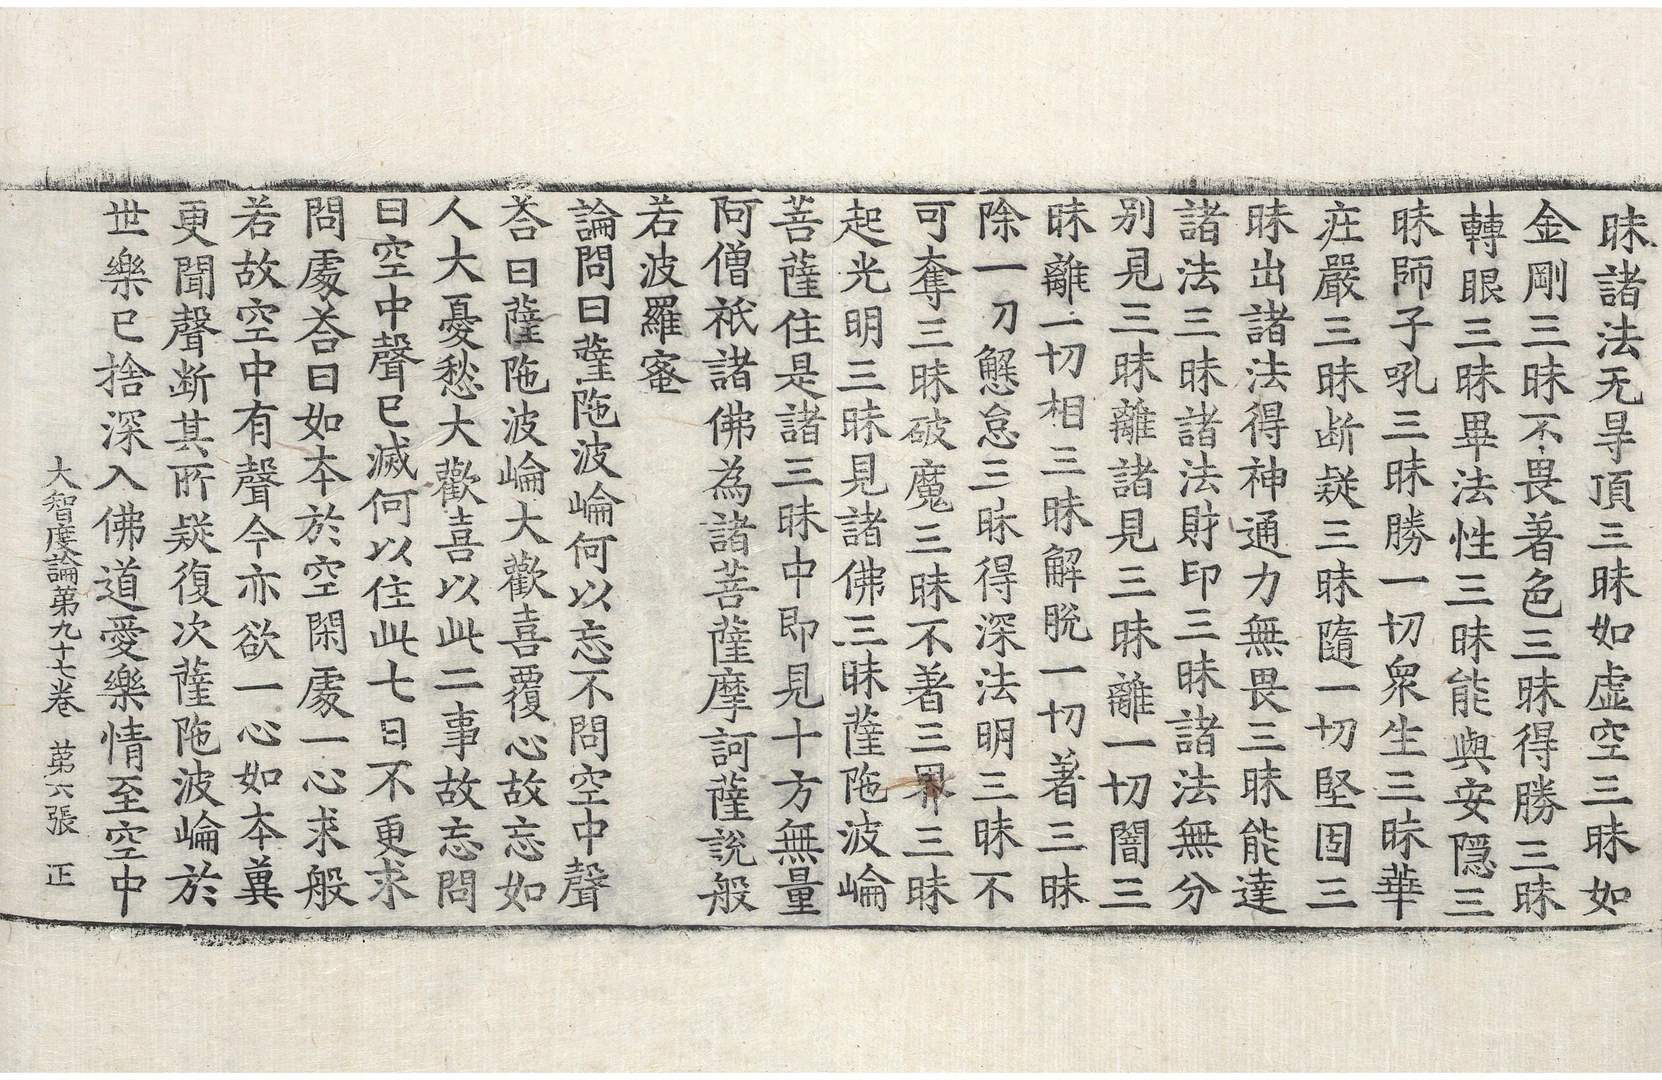 昧諸法无㝵頂三昧如虛空三昧如
金剛三昧不畏著色三昧得勝三昧
轉眼三昧畢法性三昧能與安隱三
昧師子吼三昧勝一切衆生三昧華
莊嚴三昧断疑三昧隨一切堅固三
昧出諸法得神通力無畏三昧能達
諸法三昧諸法財印三昧諸法無分
別見三昧離諸見三昧離一切闇三
昧離一切相三昧解脫一切著三昧
除一刀懈怠三昧得深法明三昧不
可奪三昧破魔三昧不著三界三昧
起光明三昧見諸佛三昧薩陁波崘
菩薩住是諸三昧中即見十方無量
阿僧祇諸佛為諸菩薩摩訶薩說般
若波羅蜜
論問曰薩陁波崘何以忘不問空中聲
荅曰薩陁波崘大歡喜覆心故忘如
人大憂愁大歡喜以此二事故忘問
曰空中聲已滅何以住此七日不更求
問處荅曰如本於空閑處一心求般
若故空中有聲今亦欲一心如本兾
更聞聲断其所疑復次薩陁波崘於
世樂已捨深入佛道愛樂情至空中
大智度論第九十七卷　第六張　正